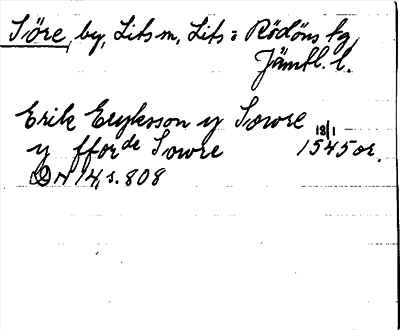 Söre, by, Lits sn, Lits o Rödöns tg,
Jämtl. l.
Erik Eryksson y Sowre
y fforde Sowre 18/1 1545 or.
DN 14, s. 808